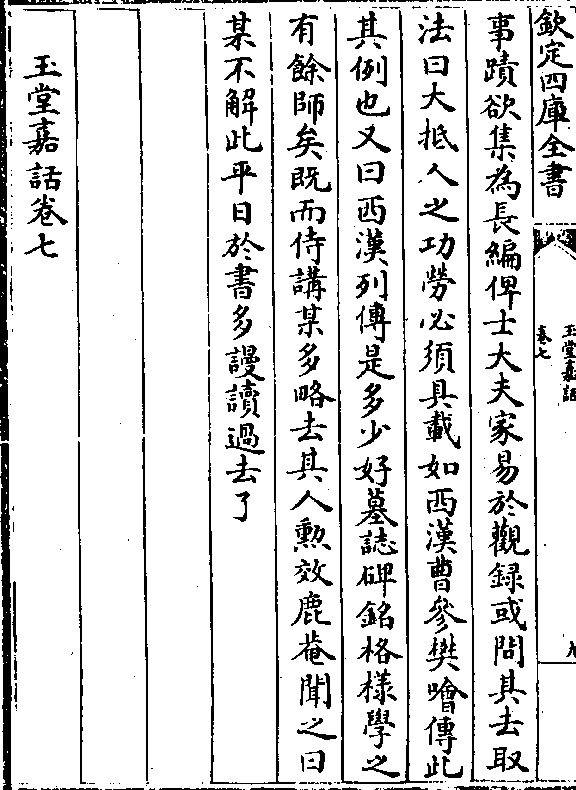 欽定四庫全書
玉堂嘉話
卷七
九
事蹟欲集為長編俾士大夫家易於觀録或問其去取
法曰大抵人之功勞必須具載如西漢曹參樊噲傳此
其例也又曰西漢列傳是多少好墓誌碑銘格樣學之
有餘師矣既而侍講某多略去其人勲效鹿菴聞之曰
某不解此平日於書多謾讀過去了
玉堂嘉話卷七